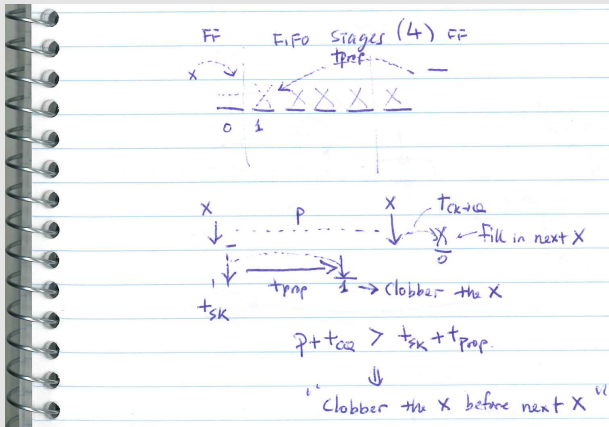 FF FIFO Stages (4) FF
tprop
x
X X X X X
0 1
X P X tCK→Q
X ← Fill in next X
0
tprop 1 → Clobber the X
tSK
P + tCQ > tSK + tprop.
⇓
"Clobber the X before next X"